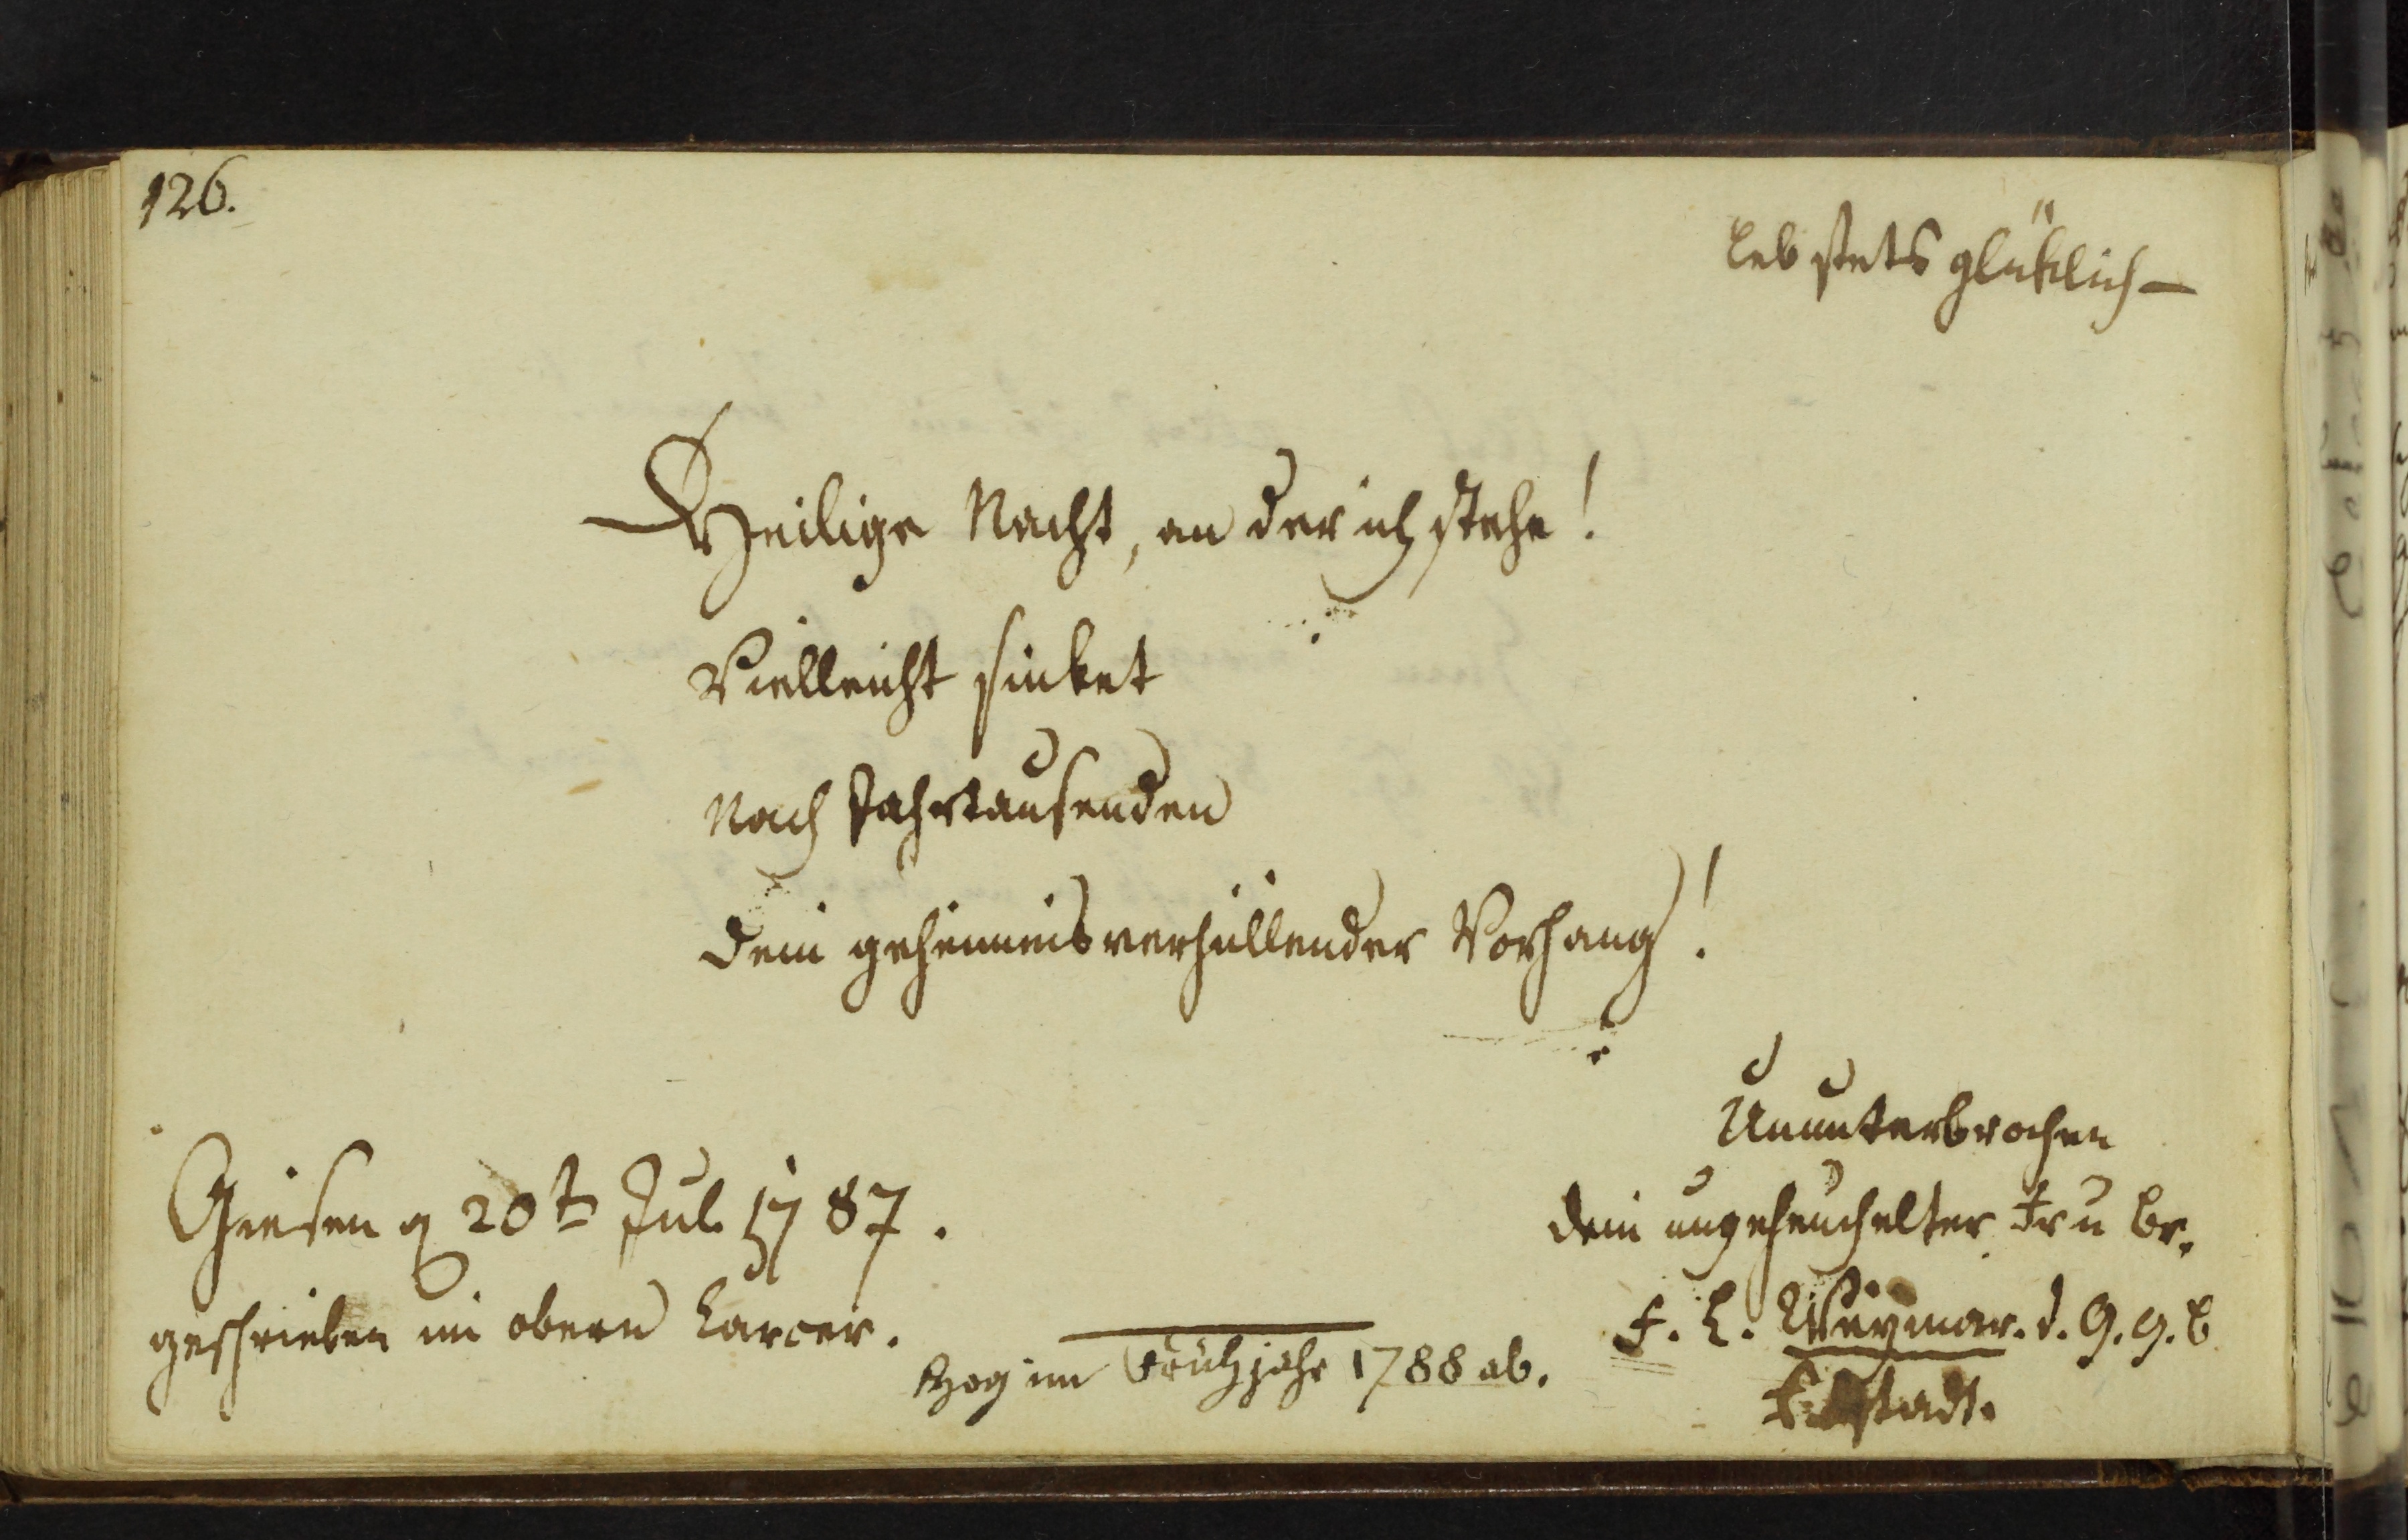 126.
Leb stets glüklich –
Heilige Nacht, an der ich stehe!
Vielleicht sinket
Nach Jahrtausenden
Dein geheimnisverhüllender Vorhang!
Ununterbrochen
Giesen 20t Jul. 1787.
dein ungeheuchelter Fr u Br.
geschrieben im obern Carcer.
F. L. Weymar. d. G. G. B
zog im Frühjahr 1788 ab.